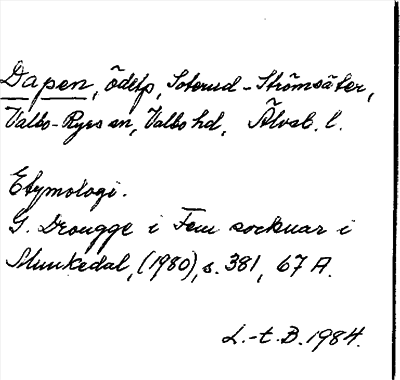 Dapen, ödetp, Soterud-Strömsäter,
Valbo-Ryrs sn, Valbo hd, Älvsb. l.
Etymologi.
G. Drougge i Fem socknar i
Munkedal, (1980), s. 381, 67 A.
L.-t. B. 1984.